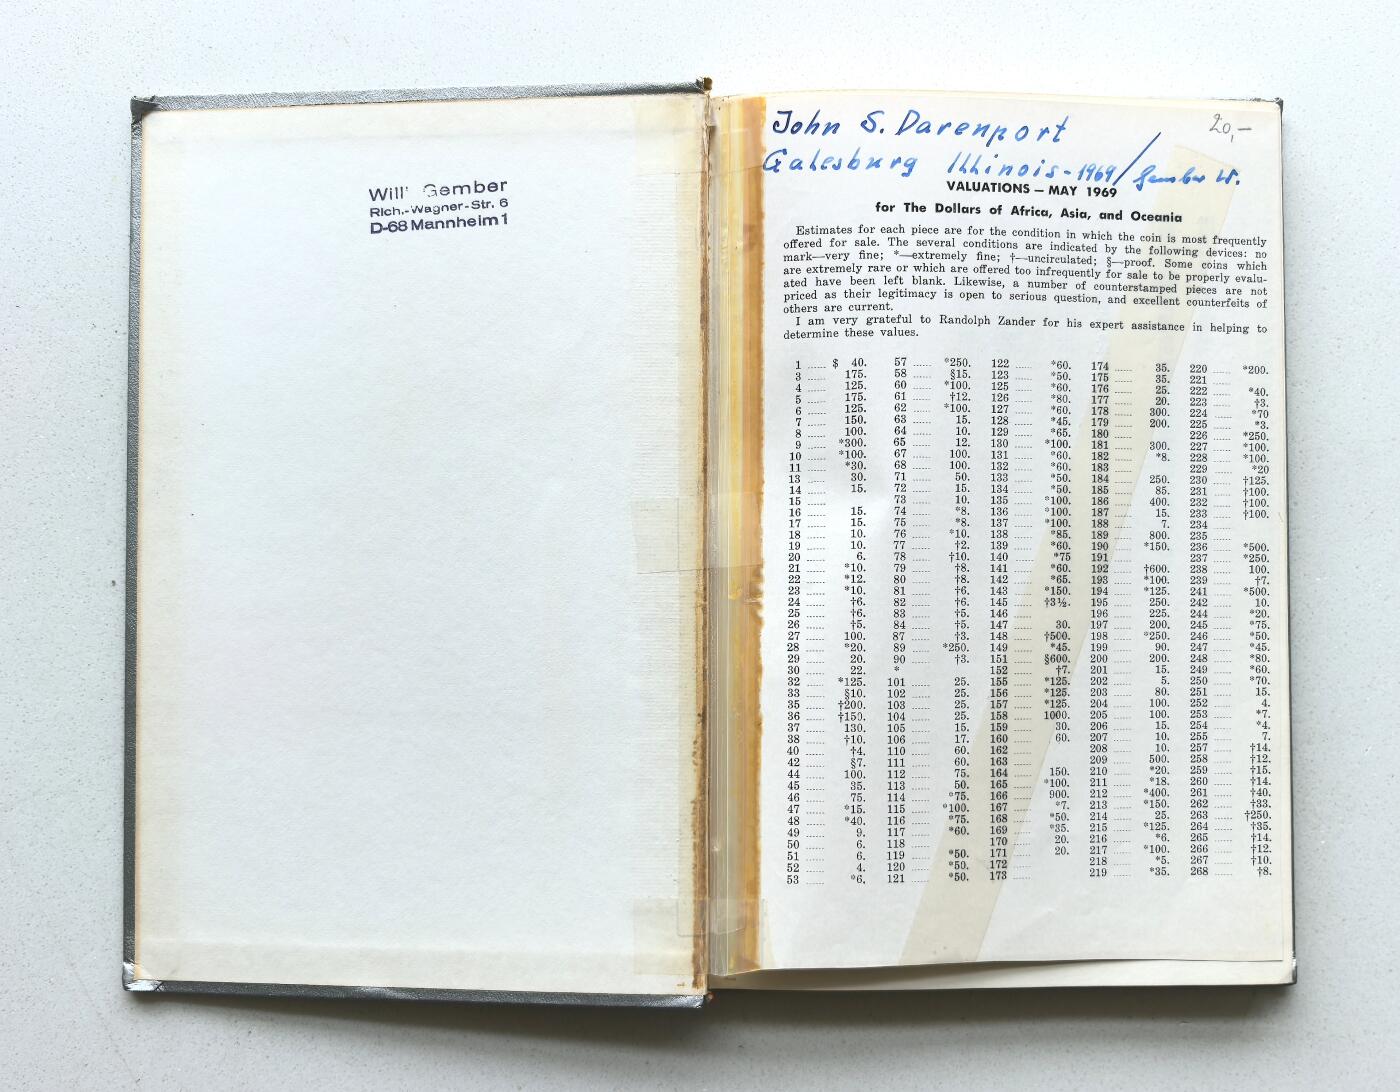 Will' Gember
Rich.-Wagner-Str. 6
D-68 Mannheim 1
20,-
John S. Darenport
Galesburg Illinois-1969/ Gember W.
VALUATIONS — MAY 1969
for The Dollars of Africa, Asia, and Oceania
Estimates for each piece are for the condition in which the coin is most frequently
offered for sale. The several conditions are indicated by the following devices: no
mark—very fine; *—extremely fine; †—uncirculated; §—proof. Some coins which
are extremely rare or which are offered too infrequently for sale to be properly evalu-
ated have been left blank. Likewise, a number of counterstamped pieces are not
priced as their legitimacy is open to serious question, and excellent counterfeits of
others are current.
I am very grateful to Randolph Zander for his expert assistance in helping to
determine these values.
1 ...... $ 40.
3 ...... 175.
4 ...... 125.
5 ...... 175.
6 ...... 125.
7 ...... 150.
8 ...... 100.
9 ...... *300.
10 ...... *100.
11 ...... *30.
13 ...... 30.
14 ...... 15.
15 ......
16 ...... 15.
17 ...... 15.
18 ...... 10.
19 ...... 10.
20 ...... 6.
21 ...... *10.
22 ...... *12.
23 ...... *10.
24 ...... †6.
25 ...... †6.
26 ...... †5.
27 ...... 100.
28 ...... *20.
29 ...... 20.
30 ...... 22.
32 ...... *125.
33 ...... §10.
35 ...... †200.
36 ...... †150.
37 ...... 130.
38 ...... †10.
40 ...... †4.
42 ...... §7.
44 ...... 100.
45 ...... 35.
46 ...... 75.
47 ...... *15.
48 ...... *40.
49 ...... 9.
50 ...... 6.
51 ...... 6.
52 ...... 4.
53 ...... *6.
57 ...... *250.
58 ...... §15.
60 ...... *100.
61 ...... †12.
62 ...... *100.
63 ...... 15.
64 ...... 10.
65 ...... 12.
67 ...... 100.
68 ...... 100.
71 ...... 50.
72 ...... 15.
73 ...... 10.
74 ...... *8.
75 ...... *8.
76 ...... *10.
77 ...... †2.
78 ...... †10.
79 ...... †8.
80 ...... †8.
81 ...... †6.
82 ...... †6.
83 ...... †5.
84 ...... †5.
87 ...... †3.
89 ...... *250.
90 ...... †3.
*
101 ...... 25.
102 ...... 25.
103 ...... 25.
104 ...... 25.
105 ...... 15.
106 ...... 17.
110 ...... 60.
111 ...... 60.
112 ...... 75.
113 ...... 50.
114 ...... *75.
115 ...... *100.
116 ...... *75.
117 ...... *60.
118 ......
119 ...... *50.
120 ...... *50.
121 ...... *50.
122 ...... *60.
123 ...... *50.
125 ...... *60.
126 ...... *80.
127 ...... *60.
128 ...... *45.
129 ...... *65.
130 ...... *100.
131 ...... *60.
132 ...... *60.
133 ...... *50.
134 ...... *50.
135 ...... *100.
136 ...... *100.
137 ...... *100.
138 ...... *85.
139 ...... *60.
140 ...... *75
141 ...... *60.
142 ...... *65.
143 ...... *150.
145 ...... †3½.
146 ......
147 ...... 30.
148 ...... †500.
149 ...... *45.
151 ...... §600.
152 ...... †7.
155 ...... *125.
156 ...... *125.
157 ...... *125.
158 ...... 1000.
159 ...... 30.
160 ...... 60.
162 ......
163 ......
164 ...... 150.
165 ...... *100.
166 ...... 900.
167 ...... *7.
168 ...... *50.
169 ...... *35.
170 ...... 20.
171 ...... 20.
172 ......
173 ......
174 ...... 35.
175 ...... 35.
176 ...... 25.
177 ...... 20.
178 ...... 300.
179 ...... 200.
180 ......
181 ...... 300.
182 ...... *8.
183 ......
184 ...... 250.
185 ...... 85.
186 ...... 400.
187 ...... 15.
188 ...... 7.
189 ...... 800.
190 ...... *150.
191 ......
192 ...... †600.
193 ...... *100.
194 ...... *125.
195 ...... 250.
196 ...... 225.
197 ...... 200.
198 ...... *250.
199 ...... 90.
200 ...... 200.
201 ...... 15.
202 ...... 5.
203 ...... 80.
204 ...... 100.
205 ...... 100.
206 ...... 15.
207 ...... 10.
208 ...... 10.
209 ...... 500.
210 ...... *20.
211 ...... *18.
212 ...... *400.
213 ...... *150.
214 ...... 25.
215 ...... *125.
216 ...... *6.
217 ...... *100.
218 ...... *5.
219 ...... *35.
220 ...... *200.
221 ......
222 ...... *40.
223 ...... †3.
224 ...... *70
225 ...... *3.
226 ...... *250.
227 ...... *100.
228 ...... *100.
229 ...... *20
230 ...... †125.
231 ...... †100.
232 ...... †100.
233 ...... †100.
234 ......
235 ......
236 ...... *500.
237 ...... *250.
238 ...... 100.
239 ...... †7.
241 ...... *500.
242 ...... 10.
244 ...... *20.
245 ...... *75.
246 ...... *50.
247 ...... *45.
248 ...... *80.
249 ...... *60.
250 ...... *70.
251 ...... 15.
252 ...... 4.
253 ...... *7.
254 ...... *4.
255 ...... 7.
257 ...... †14.
258 ...... †12.
259 ...... †15.
260 ...... †14.
261 ...... †40.
262 ...... †33.
263 ...... †250.
264 ...... †35.
265 ...... †14.
266 ...... †12.
267 ...... †10.
268 ...... †8.